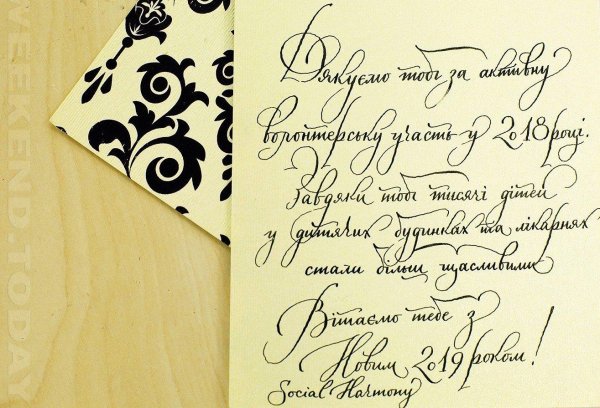 Дякуємо тобі за активну
волонтерську участь у 2018 році.
Завдяки тобі тисячі дітей
у дитячих будинках та лікарнях
стали більш щасливими
Вітаємо тебе з
Новим 2019 роком!
Social Harmony
WEEKEND.TODAY